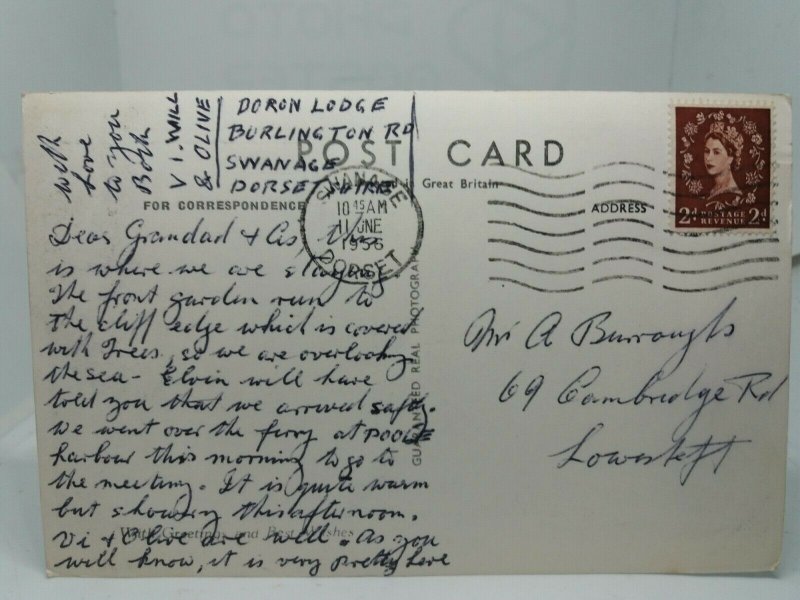 with
love
to you
Both
VI. WILL
& OLIVE
DORON LODGE
BURLINGTON RD
SWANAGE
DORSETSHIRE
POST CARD
Great Britain
FOR CORRESPONDENCE
ADDRESS
SWANAGE
10 45 AM
11 JNE
1956
DORSET
2D POSTAGE REVENUE 2D
Dear Grandad & As, this
is where we are staying
The front garden runs to
the cliff edge which is covered
with Trees, so we are overlooking
the sea - Elvin will have
told you that we arrived safely.
We went over the ferry at POOLE
harbour this morning to go to
the meeting. It is quite warm
but showery this afternoon.
With Greetings and Best Wishes
Vi & Olive are well. As you
will know, it is very pretty here
GUARANTEED REAL PHOTOGRAPH
Mr A Burroughs
69 Cambridge Rd
Lowestoft